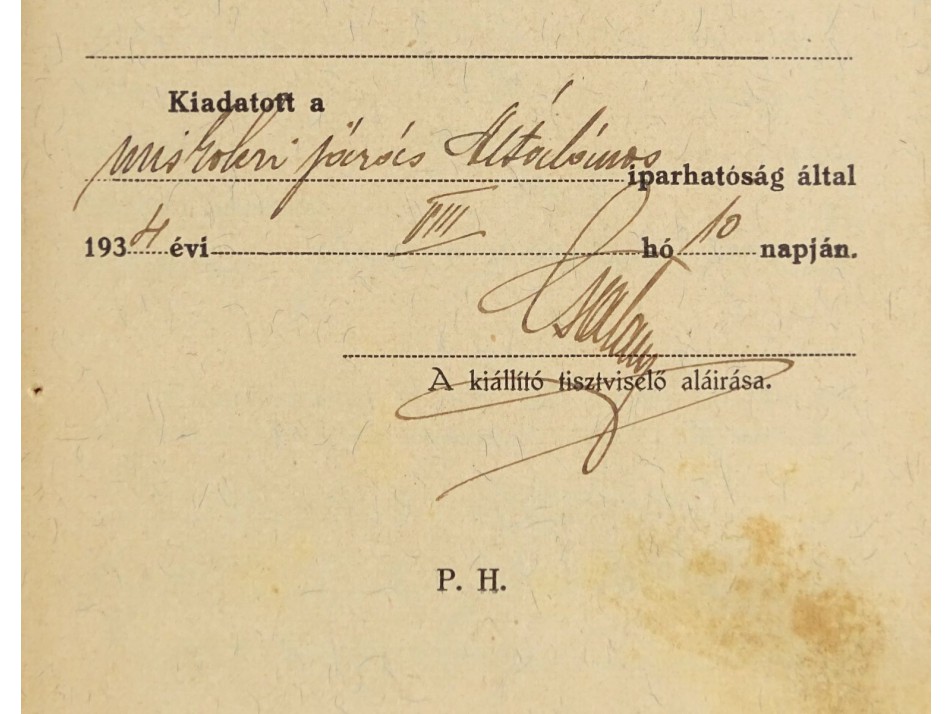 Kiadatott a
miskolci járás Általános iparhatóság által
1934 évi VIII hó 10 napján.
A kiállító tisztviselő aláirása.
P. H.